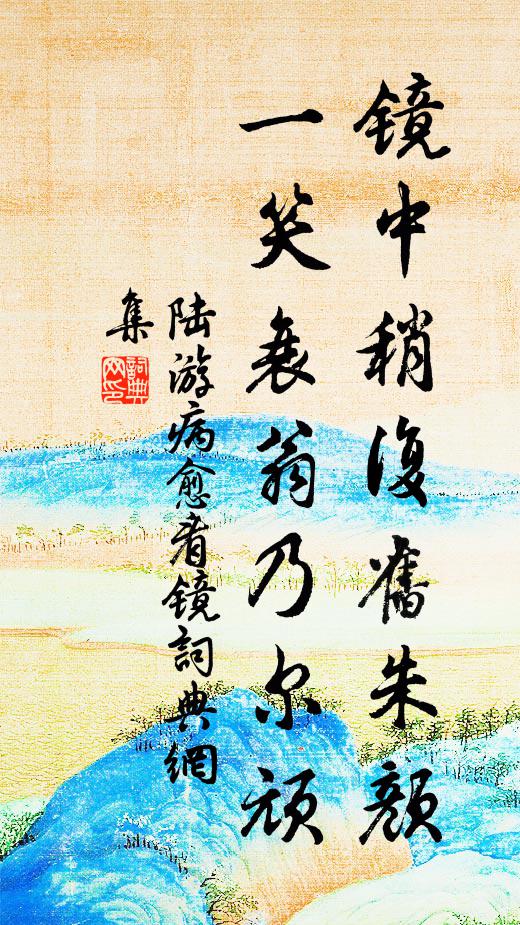 镜中稍复舊朱顔
一笑衰翁乃尔顽
陆游病愈看镜詞典網
集
詞典网印